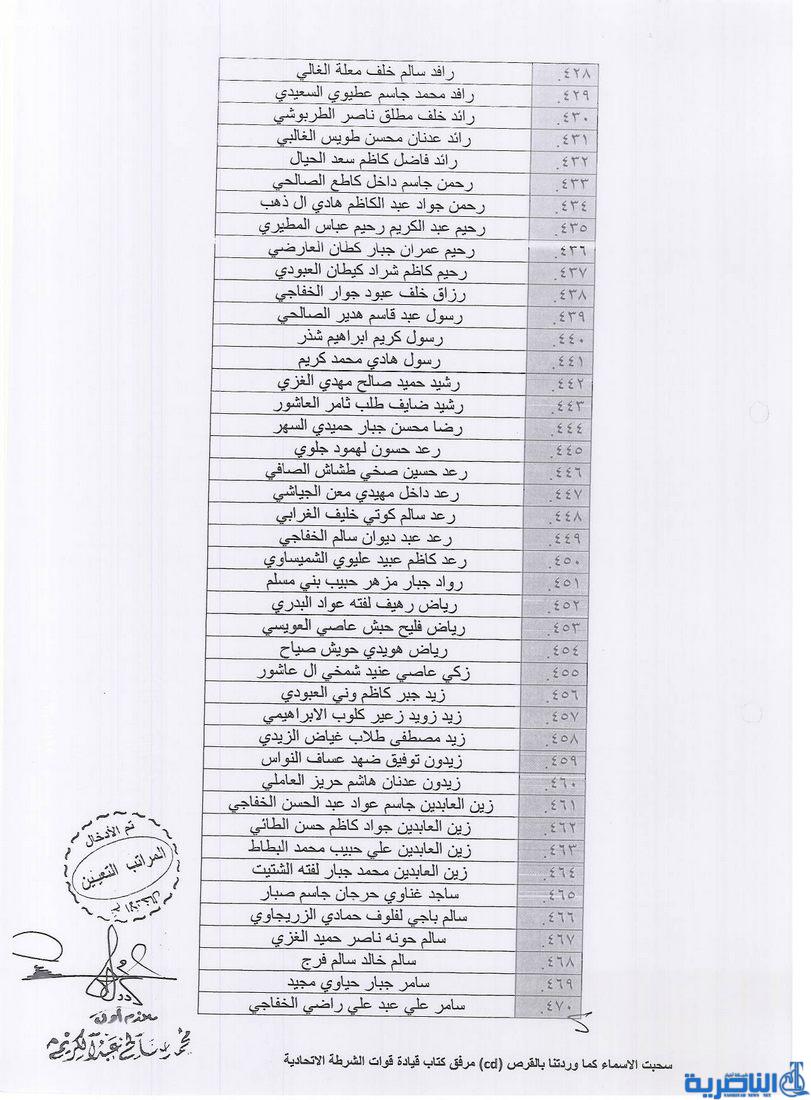 ٤٢٨. رافد سالم خلف معلة الغالي
٤٢٩. رافد محمد جاسم عطيوي السعيدي
٤٣٠. رائد خلف مطلق ناصر الطربوشي
٤٣١. رائد عدنان محسن طويس الغالبي
٤٣٢. رائد فاضل كاظم سعد الحيال
٤٣٣. رحمن جاسم داخل كاطع الصالحي
٤٣٤. رحمن جواد عبد الكاظم هادي ال ذهب
٤٣٥. رحيم عبد الكريم رحيم عباس المطيري
٤٣٦. رحيم عمران جبار كطان العارضي
٤٣٧. رحيم كاظم شراد كيطان العبودي
٤٣٨. رزاق خلف عبود جوار الخفاجي
٤٣٩. رسول عبد قاسم هدير الصالحي
٤٤٠. رسول كريم ابراهيم شذر
٤٤١. رسول هادي محمد كريم
٤٤٢. رشيد حميد صالح مهدي الغزي
٤٤٣. رشيد ضايف طلب ثامر العاشور
٤٤٤. رضا محسن جبار حميدي السهر
٤٤٥. رعد حسون لهمود جلوي
٤٤٦. رعد حسين صخي طشاش الصافي
٤٤٧. رعد داخل مهيدي معن الجياشي
٤٤٨. رعد سالم كوتي خليف الغرابي
٤٤٩. رعد عبد ديوان سالم الخفاجي
٤٥٠. رعد كاظم عبيد عليوي الشميساوي
٤٥١. رواد جبار مزهر حبيب بني مسلم
٤٥٢. رياض رهيف لفته عواد البدري
٤٥٣. رياض فليح حبش عاصي العويسي
٤٥٤. رياض هويدي حويش صياح
٤٥٥. زكي عاصي عنيد شمخي ال عاشور
٤٥٦. زيد جبر كاظم وني العبودي
٤٥٧. زيد زويد زعير كلوب الابراهيمي
٤٥٨. زيد مصطفى طلاب غياض الزيدي
٤٥٩. زيدون توفيق ضهد عساف النواس
٤٦٠. زيدون عدنان هاشم حريز العاملي
٤٦١. زين العابدين جاسم عواد عبد الحسن الخفاجي
٤٦٢. زين العابدين جواد كاظم حسن الطائي
٤٦٣. زين العابدين علي حبيب محمد البطاط
٤٦٤. زين العابدين محمد جبار لفته الشتيت
٤٦٥. ساجد غناوي حرجان جاسم صبار
٤٦٦. سالم باجي لفلوف حمادي الزريجاوي
٤٦٧. سالم حونه ناصر حميد الغزي
٤٦٨. سالم خالد سالم فرج
٤٦٩. سامر جبار حياوي مجيد
٤٧٠. سامر علي عبد علي راضي الخفاجي
تم الأدخال
المراتب التعيين
ملازم أول
سحبت الاسماء كما وردتنا بالقرص (cd) مرفق كتاب قيادة قوات الشرطة الاتحادية
الناصرية